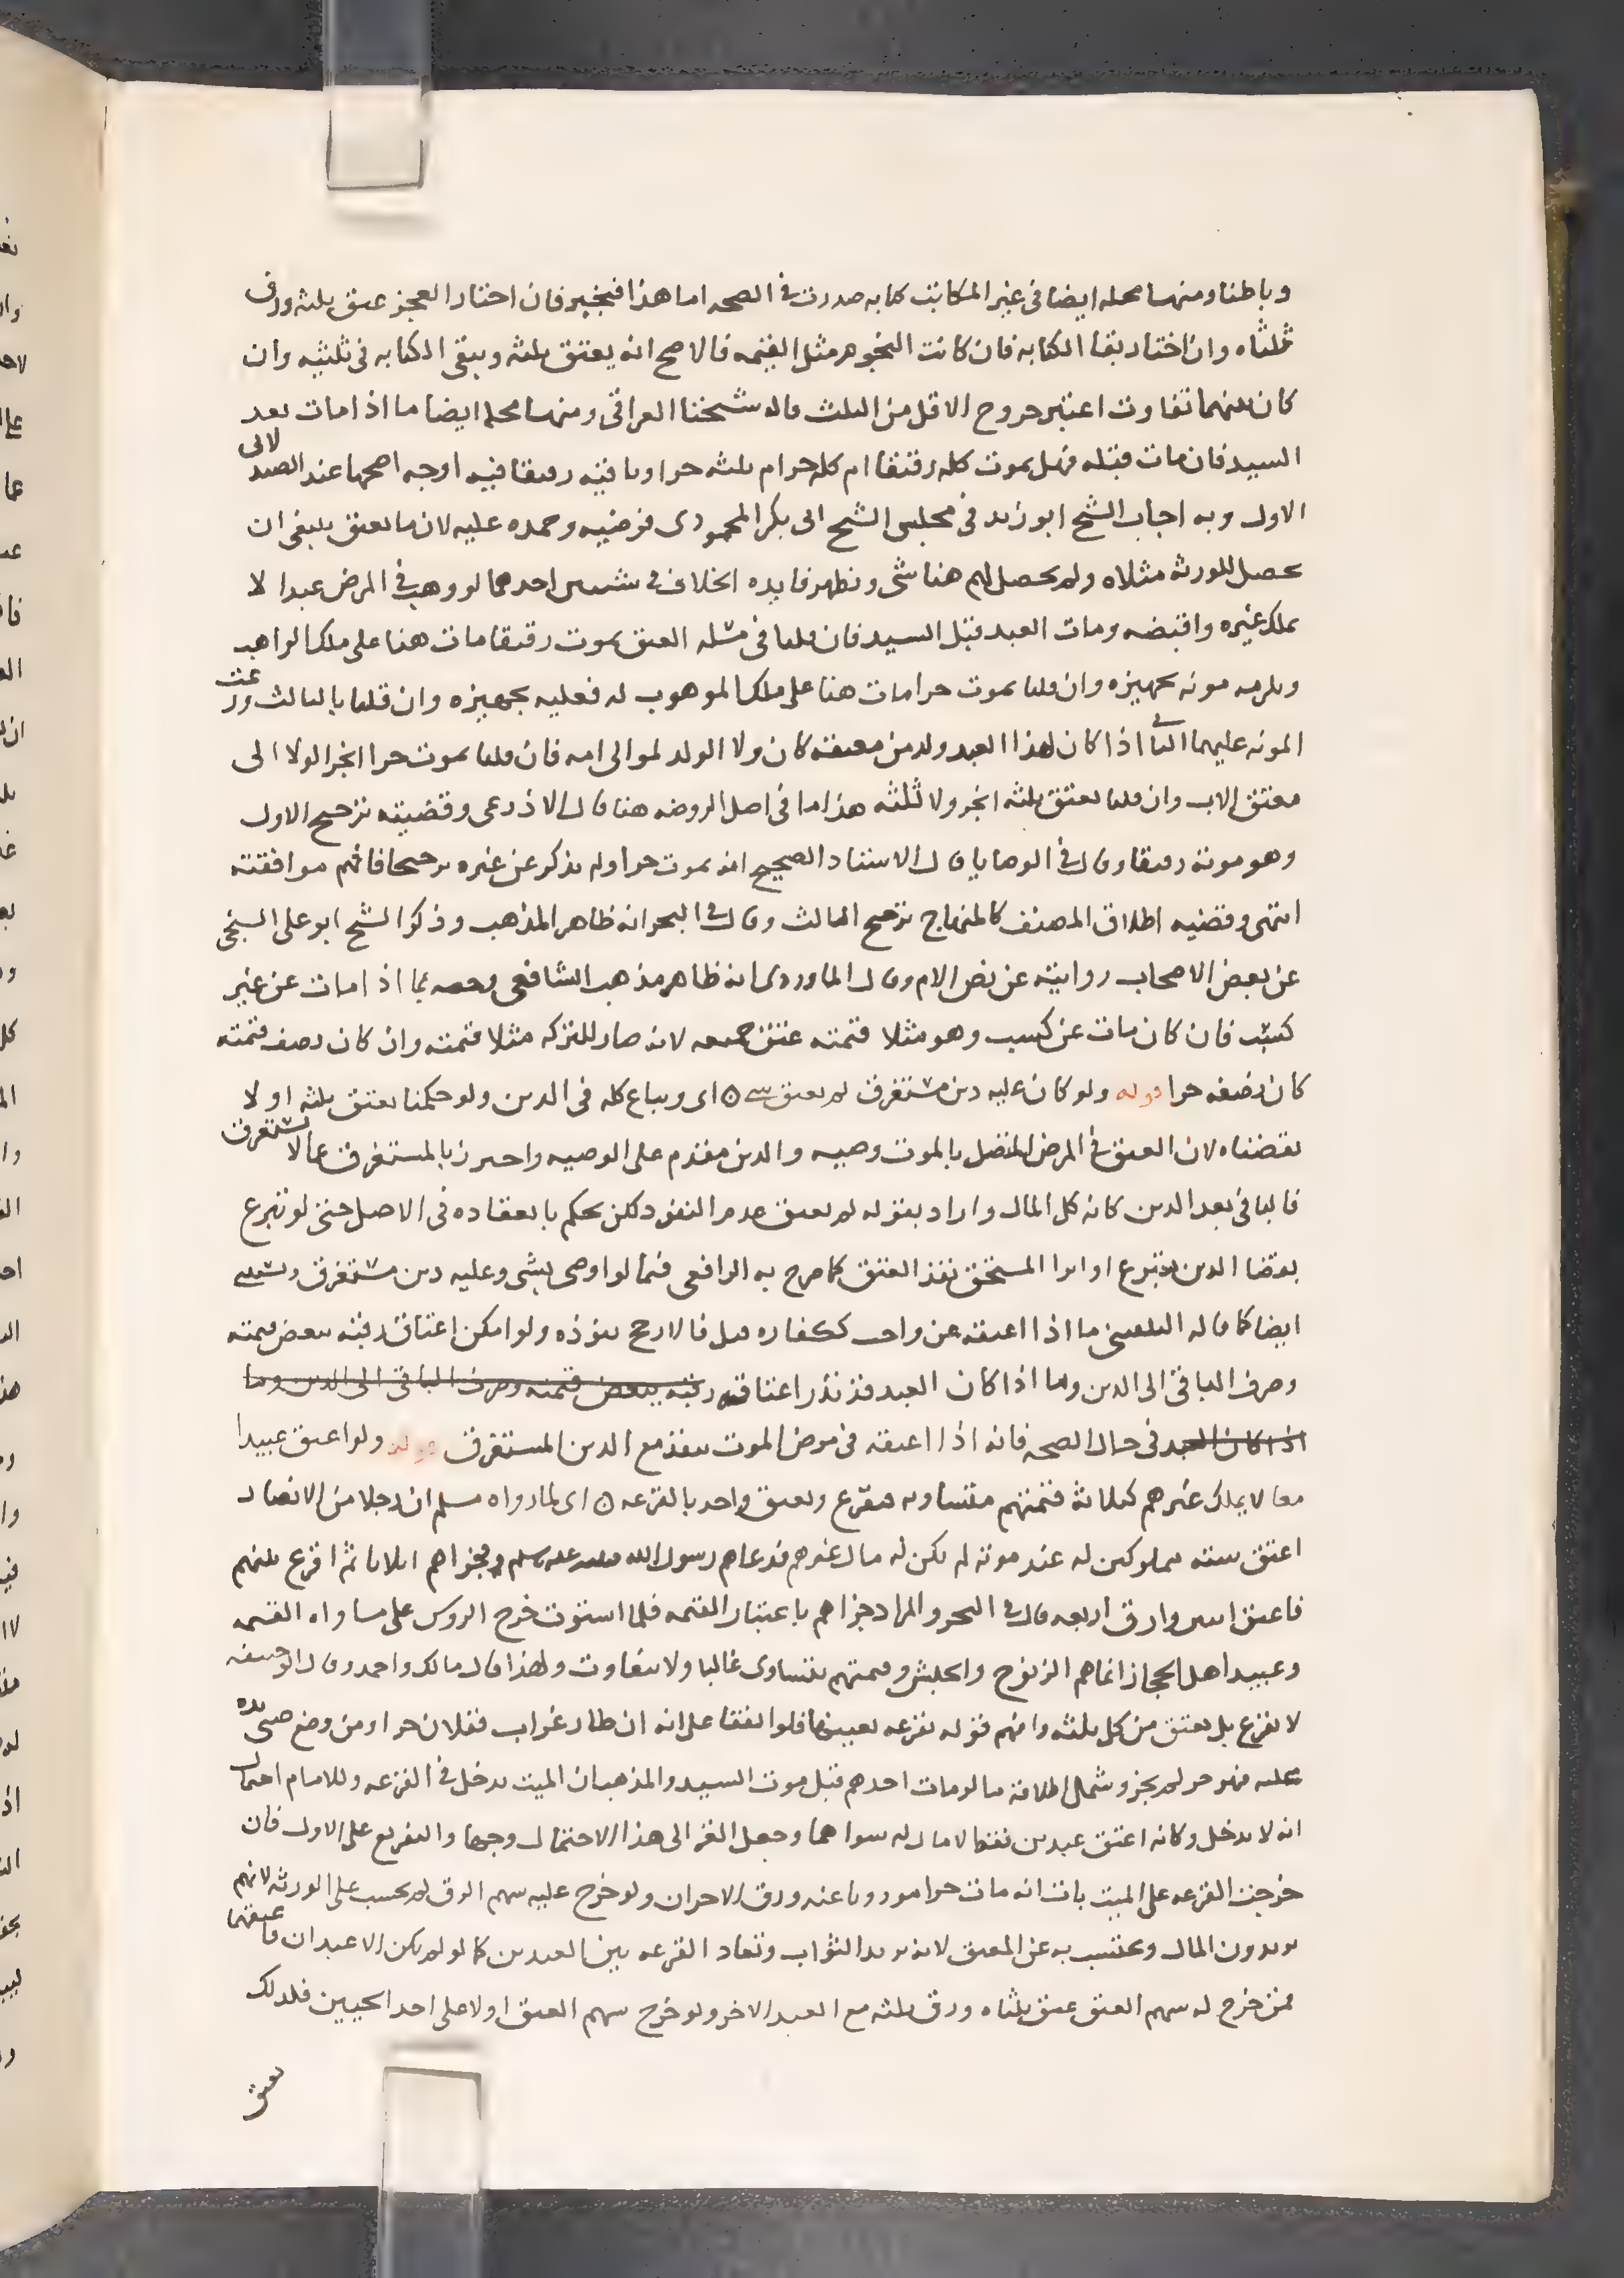 وباطنا ومنها محله ايضا في غير المكاتب كتابه صدرت في الصحه اما هذا فيخير فان اختار العجز عتق ثلثه ورق
ثلثاه وان اختار بقا الكتابه فان كانت النجوم مثل القيمه فالاصح انه يعتق ثلثه ويبقى الكتابه في ثلثيه وان
كان بينهما تفاوت اعتبر خروج الاقل من الثلث قاله شيخنا العراقي ومنها محله ايضا ما اذا مات بعد
السيد فان مات قبله فهل يموت كله رقيقا ام كله حرا ام ثلثه حرا وباقيه رقيقا فيه اوجه اصحها عند الصيدلاني
الاول وبه اجاب الشيخ ابو زيد في مجلس الشيخ ابي بكر المحمودي فرضيه وحمده عليه لان ما يعتق ينبغي ان
يحصل للورثه مثلاه ولم يحصل لهم هنا شي وتظهر فايده الخلاف في شيين احدهما لو وهب في المرض عبدا لا
يملك غيره واقبضه ومات العبد قبل السيد فان قلنا في مسله العتق يموت رقيقا مات هنا على ملك الواهب
ويلزمه مونه تجهيزه وان قلنا يموت حرا مات هنا على ملك الموهوب له فعليه تجهيزه وان قلنا بالثالث وزعت
المونه عليهما الثاني اذا كان لهذا العبد ولد من معتقه كان ولا الولد لموالي امه فان قلنا يموت حرا انجر الولا الى
معتق الاب وان قلنا يعتق ثلثه انجر ولا ثلثه هذا ما في اصل الروضه هنا قال الاذرعي وقضيته ترجيح الاول
وهو موته رقيقا وقال في الوصايا قال الاستاد الصحيح انه يموت حرا ولم يذكر عن غيره ترجيحا فافهم موافقته
انتهى وقضيه اطلاق المصنف كالمنهاج ترجيح الثالث وقال في البحر انه ظاهر المذهب وذكر الشيخ ابو علي السنجي
عن بعض الاصحاب روايته عن نص الام وقال الماوردي انه ظاهر مذهب الشافعي وخصه بما اذا مات عن غير
كسب فان كان مات عن كسب وهو مثلا قيمته عتق جميعه لانه صار للتركه مثلا قيمته وان كان نصف قيمته
كان نصفه حرا قوله ولو كان عليه دين مستغرق لم يعتق شي ه اى ويباع كله في الدين ولو حكمنا بعتق ثلثه اولا
نقضناه لان العتق في المرض المتصل بالموت وصيه والدين مقدم على الوصيه واحترز بالمستغرق عما لا يستغرق
فالباقي بعد الدين كانه كل المال واراد بقوله لم يعتق عدم النفوذ لكن يحكم بانعقاده في الاصل حتى لو تبرع
بقضا الدين متبرع او ابرا المستحق نفذ العتق كما صرح به الرافعي فيما لو اوصى بشي وعليه دين مستغرق ويستثنى
ايضا كما قاله البلقيني ما اذا اعتقه عن واجب ككفاره قتل فالارجح نفوذه ولو امكن اعتاق رقبه ببعض قيمته
وصرف الباقي الى الدين وما اذا كان العبد قد نذر اعتاقه رقبه ببعض قيمته وصرف الباقي الى الدين وما
اذا كان العبد في حال الصحه فانه اذا اعتقه في مرض الموت ينفذ مع الدين المستغرق قوله ولو اعتق عبيدا
معا لا يملك غيرهم كثلاثة قيمتهم متساويه فيقرع ويعتق واحد بالقرعه ه اى لما رواه مسلم ان رجلا من الانصار
اعتق سته مملوكين له عند موته لم يكن له مال غيرهم فدعاهم رسول الله صلى الله عليه وسلم فجزاهم اثلاثا ثم اقرع بينهم
فاعتق اثنين وارق اربعه قال في البحر والمراد جزاهم باعتبار القيمه فلما استوت خرج الروس على مساواه القيمه
وعبيد اهل الحجاز انما هم الزنوج والحبش وقيمتهم تتساوى غالبا ولا تتفاوت ولهذا قال مالك واحمد وقال ابو حنيفه
لا يقرع بل يعتق من كل ثلثه وافهم قوله بقرعه تعيينها فلو اتفقا على انه ان طار غراب ففلان حر او من وضع صبى يده
عليه فهو حر لم يجز وشمل اطلاقه ما لو مات احدهم قبل موت السيد والمذهب ان الميت يدخل في القرعه وللامام احتمال
انه لا يدخل وكانه اعتق عبدين فقط لا مال له سواهما وجعل الغزالي هذا الاحتمال وجها والتفريع على الاول فان
خرجت القرعه على الميت بان انه مات حرا موروثا عنه ورق الاخران ولو خرج عليه سهم الرق لم يحسب على الورثه لانهم
يريدون المال ويحتسب به عن المعتق لانه يريد الثواب وتعاد القرعه بين العبدين كما لو لم يكن الا عبدان فاعتقهما
فمن خرج له سهم العتق عتق ثلثاه ورق ثلثه مع العبد الاخر ولو خرج سهم العتق اولا على احد الحيين فلذلك
يعتق